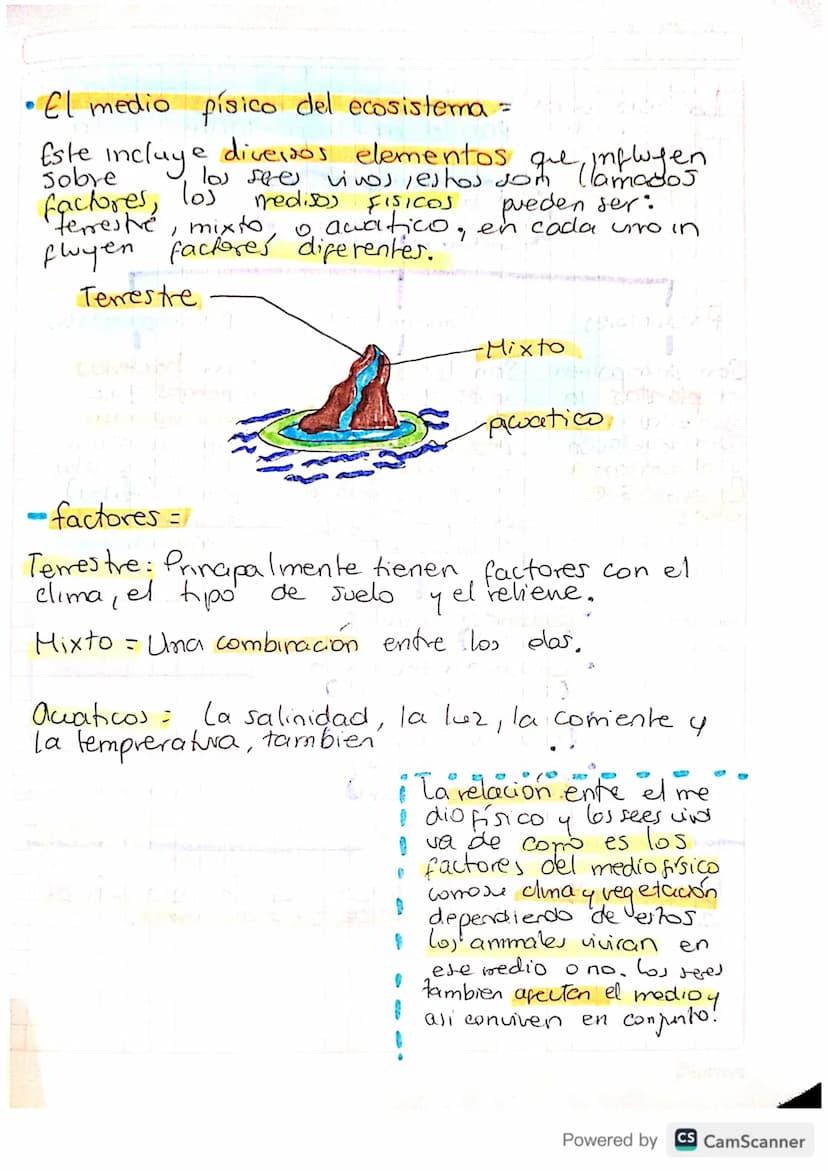 • El medio físico del ecosistema =
Este incluye diversos elementos que influyen
sobre los sees vivos, estos son llamados
factores, los medisos físicos pueden ser:
terrestre, mixto, o acuatico, en cada uno in
fluyen factores diferentes.
Terrestre
Mixto
acuatico
- factores =
Terrestre: Principalmente tienen factores con el
clima, el tipo de suelo y el relieve.
Mixto = Una combinación entre los dos.
Acuaticos = La salinidad, la luz, la corriente y
la tempreratura, tambien
La relación ente el me
dio físico y los sees vivos
va de como es los
factores del medio físico
como se clima y vegetación
dependiendo de estos
los animales viviran en
ese medio o no. Los seres
tambien afectan el medio y
asi conviven en conjunto!
Powered by CS CamScanner